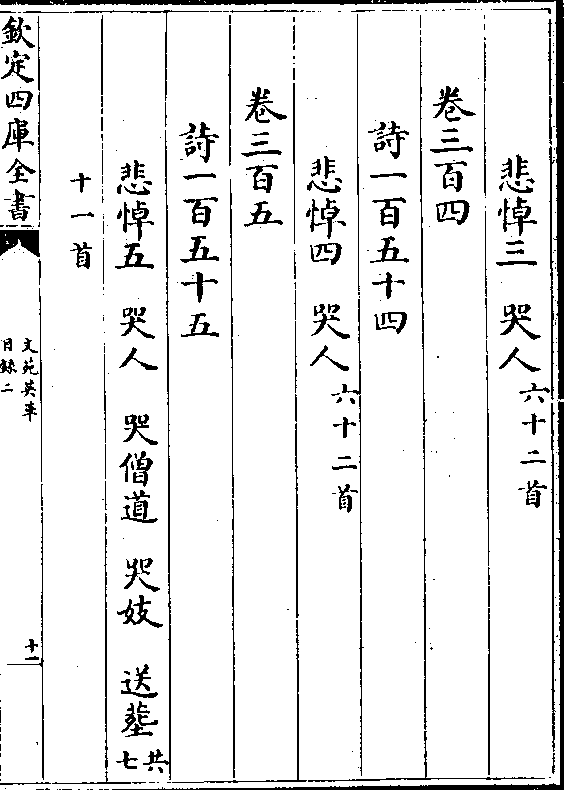 悲悼三 哭人六十二首
卷三百四
詩一百五十四
悲悼四 哭人六十二首
卷三百五
詩一百五十五
悲悼五 哭人 哭僧道 哭妓 送塟共七
十一首
欽定四庫全書
文苑英華
目録二
十一